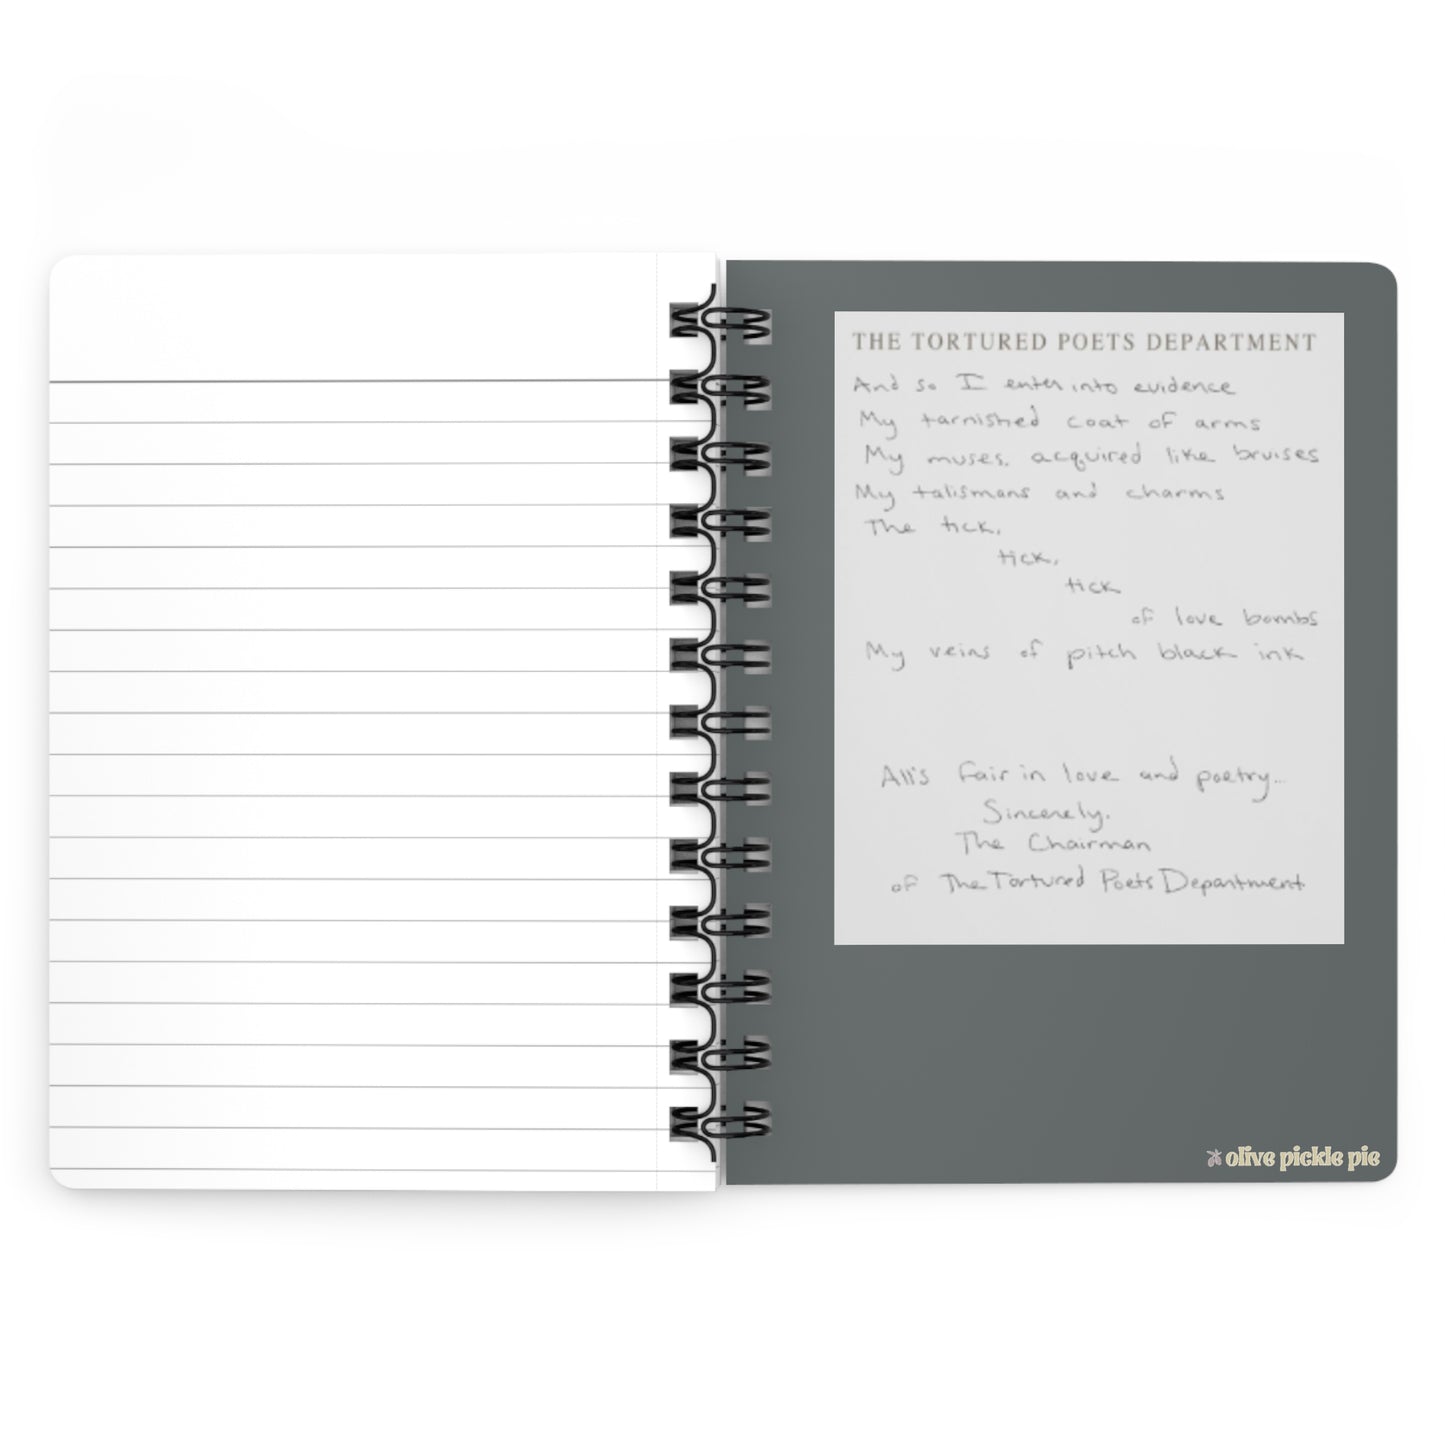 THE TORTURED POETS DEPARTMENT
And so I enter into evidence
My tarnished coat of arms
My muses, acquired like bruises
My talismans and charms
The tick,
tick,
tick
of love bombs
My veins of pitch black ink
All's fair in love and poetry...
Sincerely,
The Chairman
of The Tortured Poets Department
olive pickle pie